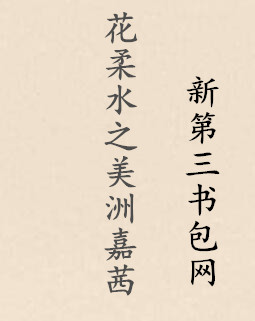 花柔水之美洲嘉茜
新第三书包网